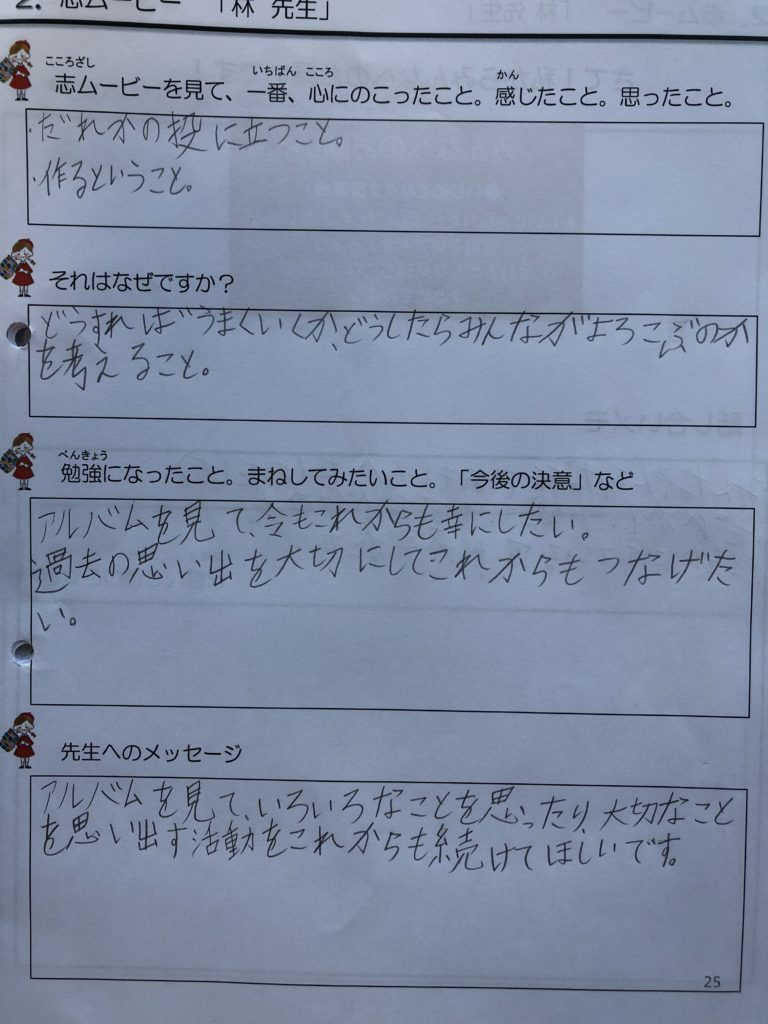 2. 志ムービー 「林 先生」
こころざし いちばん こころ かん
志ムービーを見て、一番、心にのこったこと。感じたこと。思ったこと。
・だれかの役に立つこと。
・作るということ。
それはなぜですか？
どうすればうまくいくか、どうしたらみんながよろこぶのか
を考えること。
べんきょう
勉強になったこと。まねしてみたいこと。「今後の決意」など
アルバムを見て、今もこれからも幸にしたい。
過去の思い出を大切にしてこれからもつなげた
い。
先生へのメッセージ
アルバムを見て、いろいろなことを思ったり、大切なこと
を思い出す活動をこれからも続けてほしいです。
25